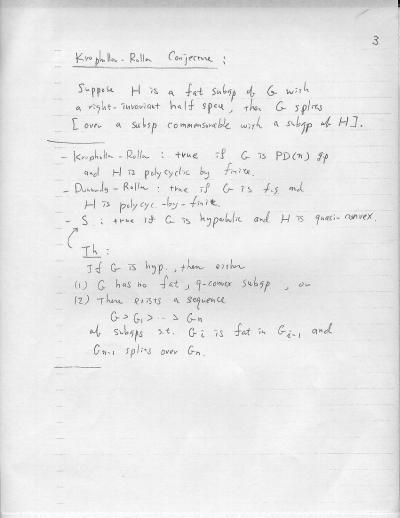 3
Kropholler-Roller Conjecture :
Suppose H is a fat subgp of G with
a right-invariant half space, then G splits
[over a subgp commensurable with a subgp of H].
- Kropholler-Roller : true if G is PD(n) gp
and H is polycyclic by finite.
- Dunwoody-Roller : true if G is f.g and
H is polycyc.-by-finite.
- S : true if G is hyperbolic and H is quasi-convex.
Th :
If G is hyp., then either
(1) G has no fat, q-convex subgp, or
(2) There exists a sequence
G > G1 > ... > Gn
of subgps s.t. Gi is fat in Gi-1 and
Gn-1 splits over Gn.